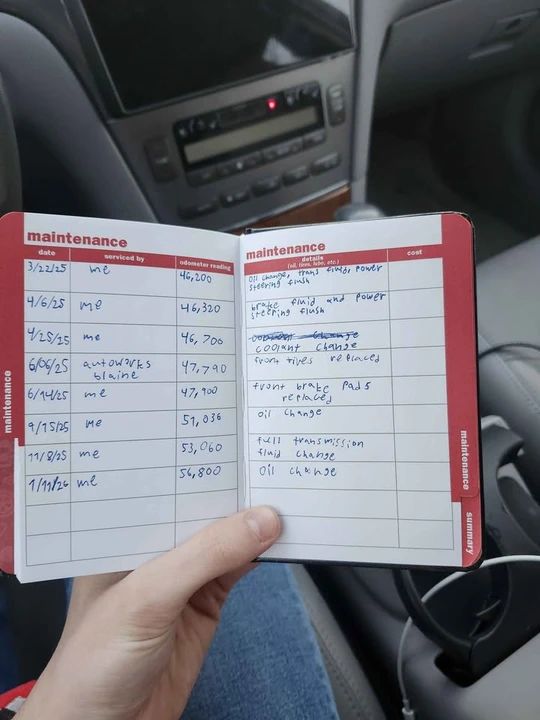 maintenance
date serviced by odometer reading
3/22/25 me 46,200
4/6/25 me 46,320
4/25/25 me 46,700
6/06/25 autoworks 47,790
blaine
6/14/25 me 47,900
9/15/25 me 51,036
11/8/25 me 53,060
1/11/26 me 56,800
maintenance
maintenance
details cost
(oil, tires, lube, etc.)
oil change, trans fluid, power
steering flush
brake fluid and power
steering flush
coolant change
front tires replaced
front brake pads
replaced
oil change
full transmission
fluid change
oil change
maintenance
summary